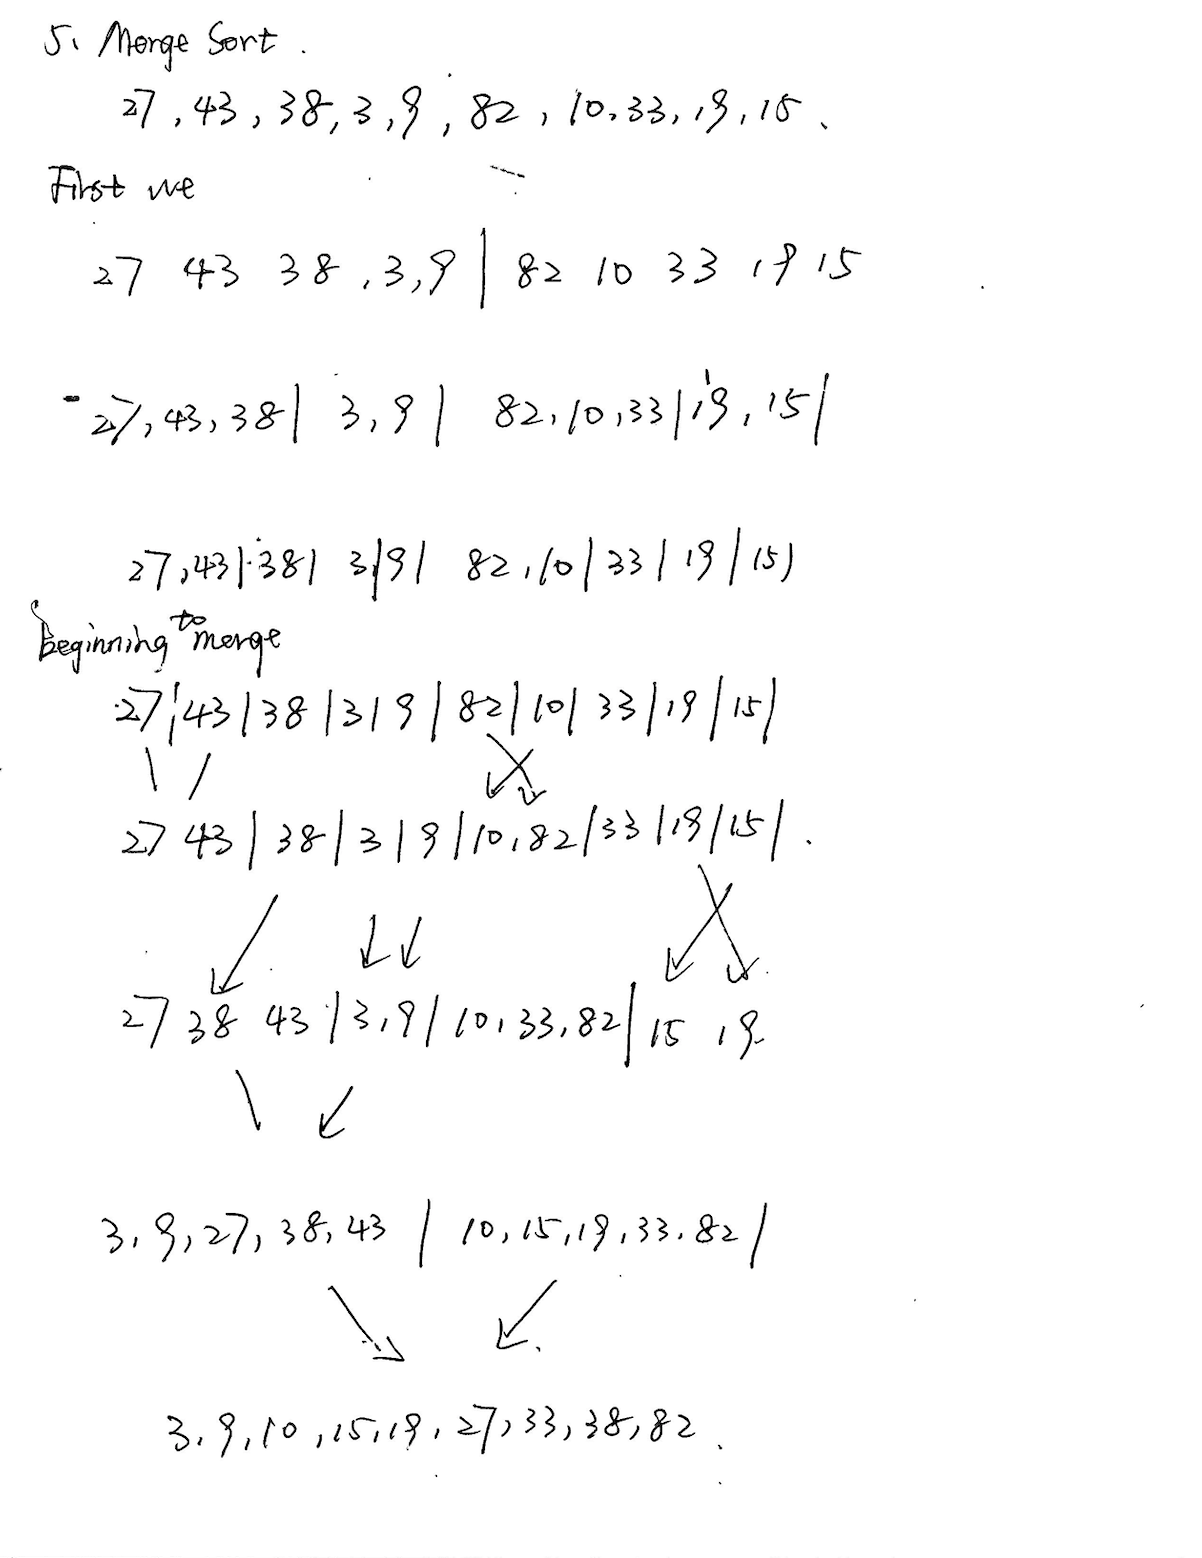 5. Merge Sort.
27, 43, 38, 3, 9, 82, 10, 33, 19, 15.
First we
27 43 38, 3, 9 | 82 10 33 19 15
27, 43, 38 | 3, 9 | 82, 10, 33 | 19, 15 |
27, 43 | 38 | 3 | 9 | 82, 10 | 33 | 19 | 15 |
Beginning to merge
27 | 43 | 38 | 3 | 9 | 82 | 10 | 33 | 19 | 15 |
27 43 | 38 | 3 | 9 | 10, 82 | 33 | 19 | 15 |.
27 38 43 | 3, 9 | 10, 33, 82 | 15 19
3, 9, 27, 38, 43 | 10, 15, 19, 33, 82 |
3, 9, 10, 15, 19, 27, 33, 38, 82.